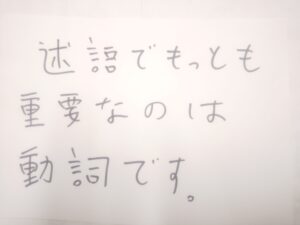 述語でもっとも
重要なのは
動詞です。